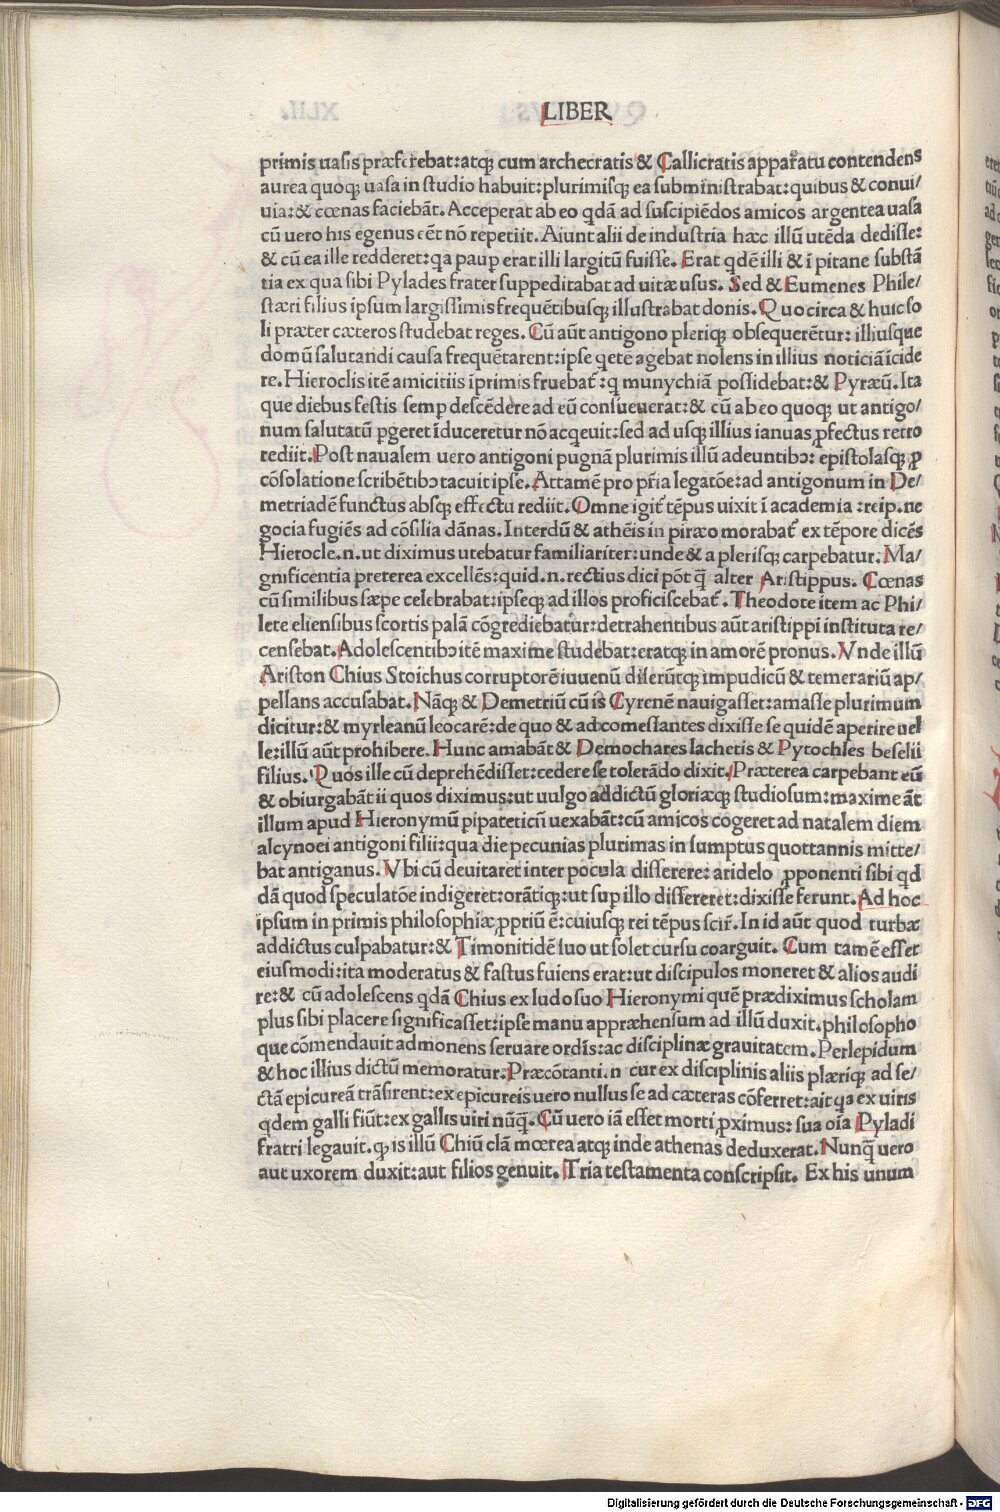 LIBER
primis uasis præferebat:atq; cum archecratis & Callicratis apparatu contendens
aurea quoq; uasa in studio habuit:plurimisq; ea subministrabat:quibus & conui/
uia:& cœnas faciebāt. Acceperat ab eo qdā ad suscipiēdos amicos argentea uasa
cū uero his egenus eēt nō repetiit. Aiunt alii de industria hæc illū utēda dedisse:
& cū ea ille redderet:qa paup erat illi largitū fuisse. Erat qdē illi & ī pitane substā
tia ex qua sibi Pylades frater suppeditabat ad uitæ usus. Sed & Eumenes Phile/
stæri filius ipsum largissimis frequētibusq; illustrabat donis. Quocirca & huic so
li præter cæteros studebat reges. Cū aūt antigono pleriq; obsequerētur: illiusque
domū salutandi causa frequētarent:ipse qetē agebat nolens in illius noticiā īcide
re. Hieroclis itē amicitiis īprimis fruebat̄ :q munychiā possidebat:& Pyræū. Ita
que diebus festis semp descēdere ad eū consueuerat:& cū ab eo quoq; ut antigo/
num salutatū pgeret īduceretur nō acqeuit:sed ad usq; illius ianuas pfectus retro
rediit. Post naualem uero antigoni pugnā plurimis illū adeuntibꝫ: epistolasq; p
cōsolatione scribētibꝫ tacuit ipse. Attamē pro pr̄ia legatōe:ad antigonum in De/
metriadē functus absq; effectu rediit. Omne igit̄ tēpus uixit ī academia :reip. ne
gocia fugiēs ad cōsilia dānas. Interdū & athēis in piræo morabat̄ ex tēpore dicēs
Hierocle.n.ut diximus utebatur familiariter:unde & a plerisq; carpebatur. Ma/
gnificentia preterea excellēs:quid.n.rectius dici pōt q̄ alter Aristippus. Cœnas
cū similibus sæpe celebrabat:ipseq; ad illos proficiscebat̄. Theodote item ac Phi/
lete eliensibus scortis palā cōgrediebatur:detrahentibus aūt aristippi instituta re/
censebat. Adolescentibꝫ itē maxime studebat:eratq; in amorē pronus. Vnde illū
Ariston Chius Stoichus corruptorē iuuenū diserūtq; impudicū & temerariū ap/
pellans accusabat. Nāq; & Demetriū cū is Cyrenē nauigasset:amasse plurimum
dicitur:& myrleanū leocarē:de quo & ad comessantes dixisse se quidē aperire uel
le:illū aūt prohibere. Hunc amabāt & Demochares lachetis & Pytochles beselii
filius. Quos ille cū deprehēdisset:cedere se tolerādo dixit. Præterea carpebant eū
& obiurgabāt ii quos diximus:ut uulgo addictū gloriæq; studiosum:maxime āt
illum apud Hieronymū pipateticū uexabāt:cū amicos cogeret ad natalem diem
alcynoei antigoni filii:qua die pecunias plurimas in sumptus quottannis mitte/
bat antiganus. Vbi cū deuitaret inter pocula disserere: aridelo pponenti sibi qd
dā quod speculatōe indigeret:orātiq;:ut sup illo dissereret:dixisse ferunt. Ad hoc
ipsum in primis philosophiæ ppriū ē:cuiusq; rei tēpus scir̄. In id aūt quod turbæ
addictus culpabatur:& Timonitidē suo ut solet cursu coarguit. Cum tamē esset
eiusmodi:ita moderatus & fastus fuiens erat:ut discipulos moneret & alios audi
re:& cū adolescens qdā Chius ex ludo suo Hieronymi quē prædiximus scholam
plus sibi placere significasset:ipse manu appræhensum ad illū duxit.philosopho
que cōmendauit admonens seruare ordīs:ac disciplinæ grauitatem. Perlepidum
& hoc illius dictū memoratur:Præcōtanti.n cur ex disciplinis aliis plæriq; ad se/
ctā epicureā trāsirent:ex epicureis uero nullus se ad cæteras cōferret:ait qa ex uiris
qdem galli fiūt:ex gallis uiri nūq̄. Cū uero iā esset morti pximus: sua oīa Pyladi
fratri legauit. q; is illū Chiū clā mœrea atq; inde athenas deduxerat. Nunq̄ uero
aut uxorem duxit:aut filios genuit. Tria testamenta conscripsit. Ex his unum
Digitalisierung gefördert durch die Deutsche Forschungsgemeinschaft - DFG